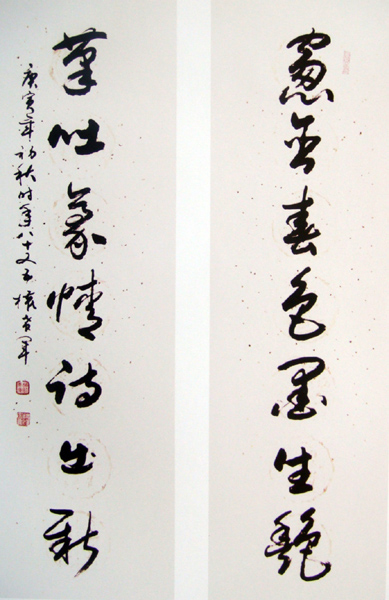 窗含春色墨生艷
筆吐豪情詩出新
庚寅年初秋时年八十又五